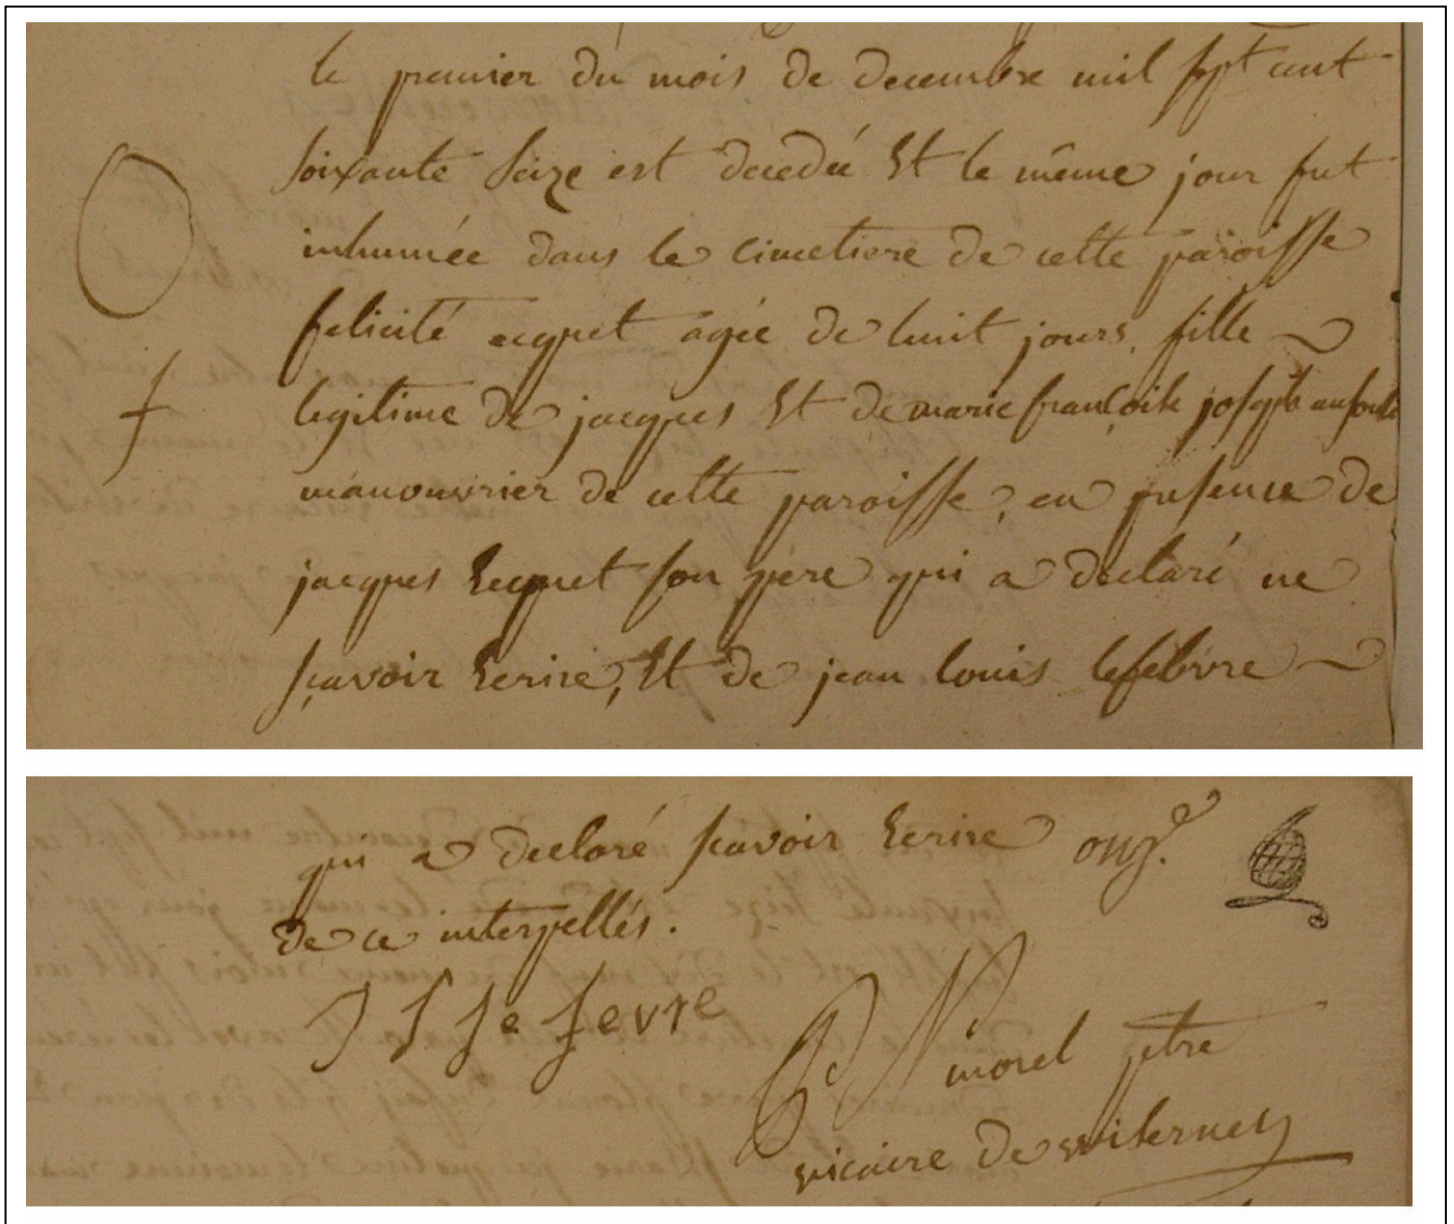 le premier du mois de decembre mil sept cent
soixante seize est decedeé Et le même jour fut
inhumée dans le cimetiere de cette paroisse
felicité ecquet agée de huit jours, fille
legitime de jacques Et de marie françoise joseph
manouvrier de cette paroisse, en presence de
jacques Ecquet son pere qui a declaré ne
sçavoir Ecrire, Et de jean louis lefebvre
qui a declaré scavoir Ecrire
de ce interpellés.
J L le fevre
morel ptre
vicaire de witernes